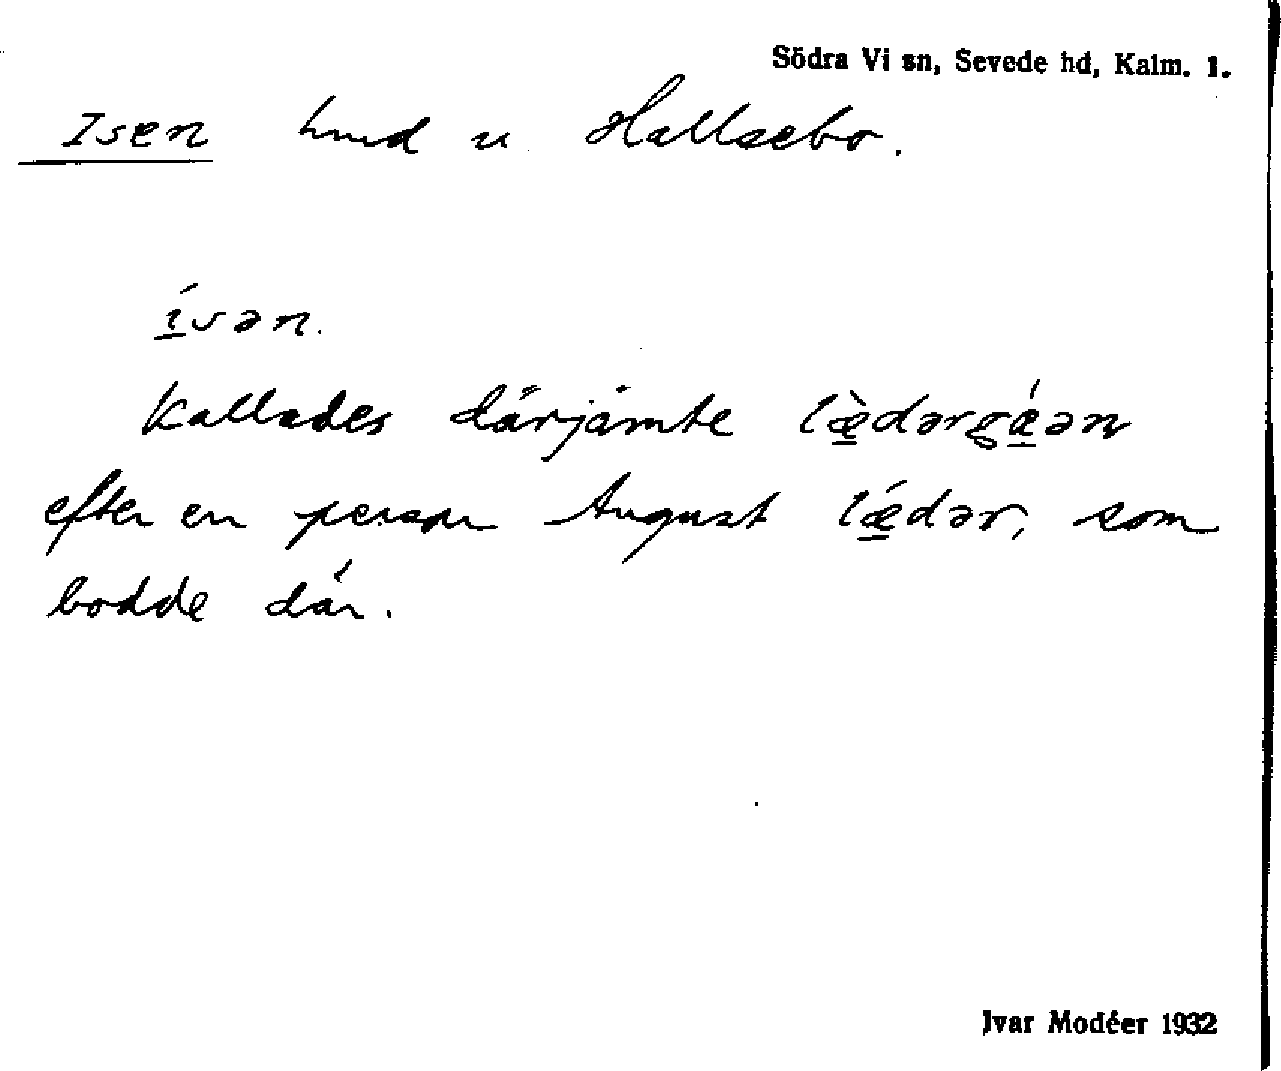 Södra Vi sn, Sevede hd, Kalm. l.
Isen hmd u Hallsebo.
í̱sən.
Kallades därjämte læ̱̀dərgǽ̱ən
efter en person August lǽ̱dər, som
bodde där.
Ivar Modéer 1932